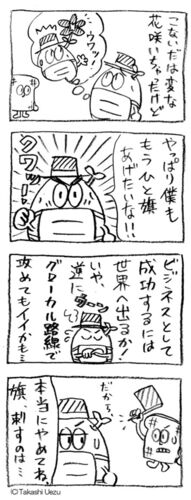 こないだは変な
花咲いちゃったけど
ウワッ
やっぱり僕も
もうひと旗
あげたいな!!
クワッ!
ビジネスとして
成功するには
世界へ出るか!
いや、
逆に
グローカル路線で
攻めてもイイかも…
だから、
本当にやめてね、
旗、刺すのは…
©Takashi Uezu